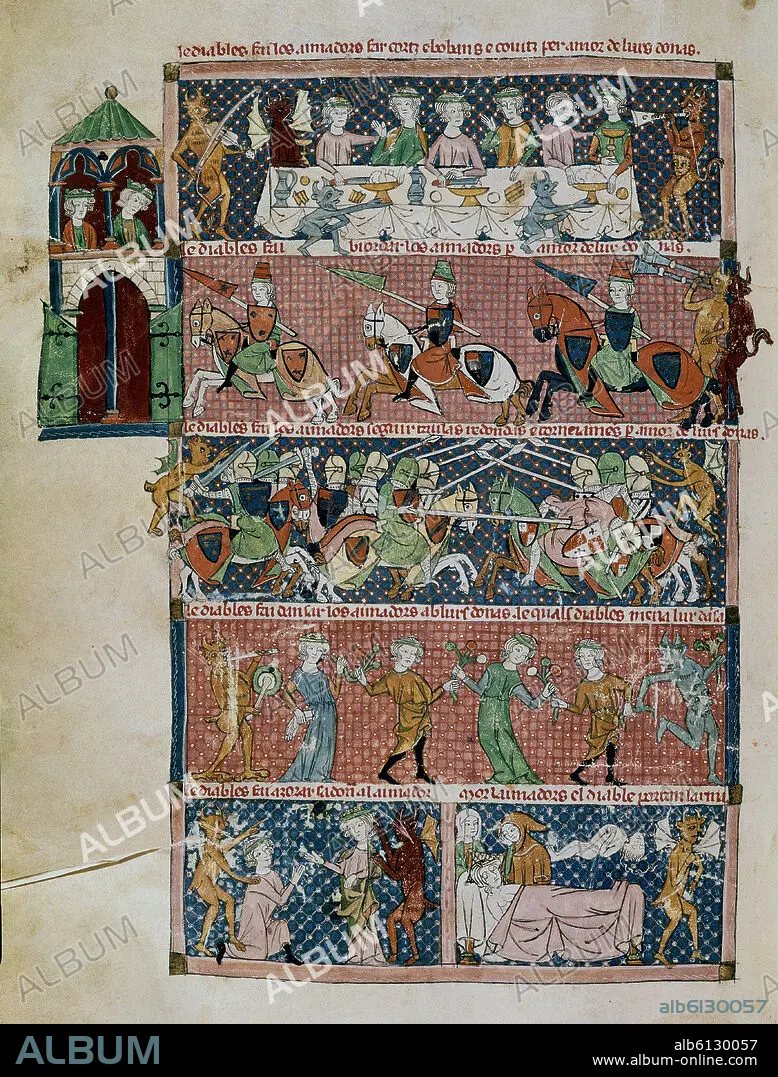 le diables fai los aimadors far cortz e bobans e covitz per amor de lurs donas.
le diables fai biordar los aimadors p amor de lur donas.
le diables fai los aimadors seguir taulas redondas e torneiamens p amor de lurs donas.
le diables fai dansar los aimadors ab lurs donas. le quals diables mena lur dansa
le diables fai azorar sa dona al aimador
mor l aimadors el diable porta
ALBUM
alb6130057
ALBUM
alb6130057
www.album-online.com